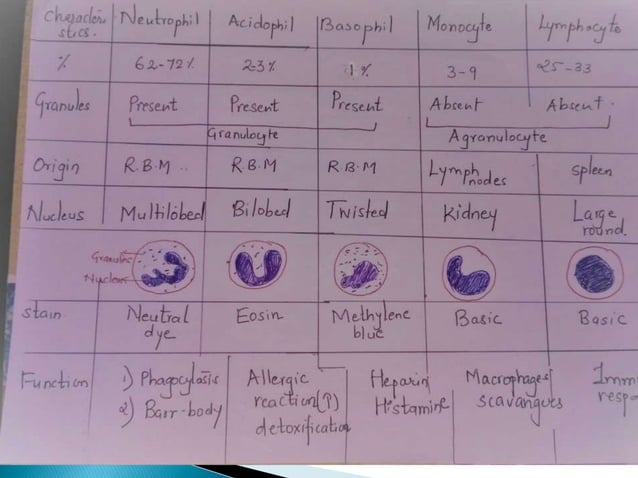 Characteri- Neutrophil Acidophil Basophil Monocyte Lymphocyte
stics.
% 62-72% 2-3% 1% 3-9 25-33
Granules Present Present Present Absent Absent.
Granulocyte Agranulocyte
Origin R.B.M .. R.B.M R.B.M Lymph nodes spleen
Nucleus Multilobed Bilobed Twisted Kidney Large
round.
Granules
Nucleus
stain Neutral Eosin Methylene Basic Basic
dye blue
Function 1) Phagocytosis Allergic Heparin Macrophages Imm
2) Barr-body reaction(↑) Histamine scavangues resp
detoxification